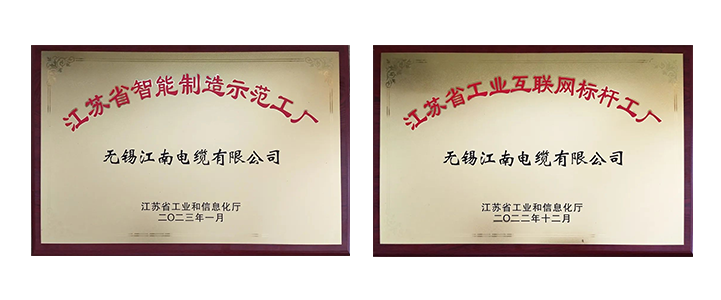 江苏省智能制造示范工厂
无锡江南电缆有限公司
江苏省工业和信息化厅
二〇二三年一月
江苏省工业互联网标杆工厂
无锡江南电缆有限公司
江苏省工业和信息化厅
二〇二二年十二月